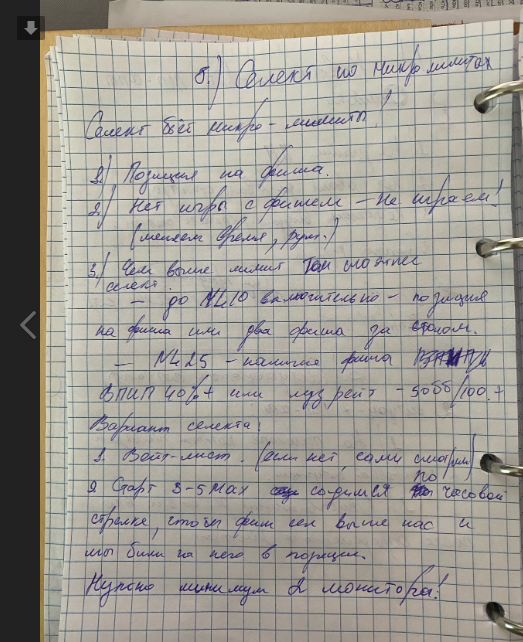 б.) Селект по микролимитах
Селект бьёт микро-лимиты!
1) Позиция на фиша.
2) Нет игры с фишем - не играем!
(меняем время, рум.)
3) Чем выше лимит том сложнее
селект.
- до NL10 включительно - позиция
на фиша или два фиша за столом.
- NL25 - наличие фиша
ВПИП 40%+ или луз рейт -50ББ/100.+
Вариант селекта:
1. Вейт-лист. (если нет, сами смотрим)
2. Старт 3-5 Max садимся по часовой
стрелке, чтобы фиш сел выше нас и
мы были на него в позиции.
Нужно минимум 2 монитора!